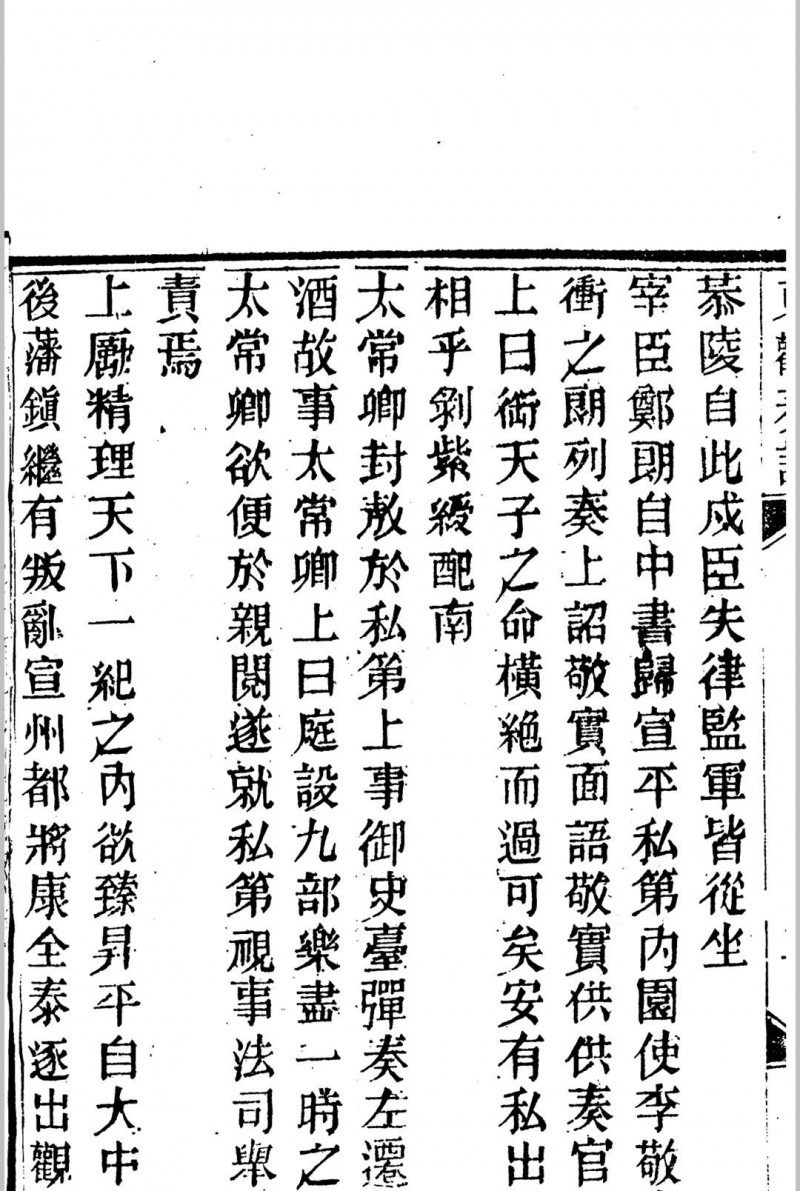 東觀奏記
恭陵自此戍臣失律監軍皆從坐
宰臣鄭朗自中書歸宣平私第內園使李敬
衝之朗列奏上詔敬實面語敬實供供奏官
上曰銜天子之命橫絶而過可矣安有私出
相乎剝紫綬配南
太常卿封敖於私第上事御史臺彈奏左遷
酒故事太常卿上曰庭設九部樂盡一時之
太常卿欲便於親閱遂就私第視事法司舉
責焉
上勵精理天下一紀之內欲臻昇平自大中
後藩鎮繼有叛亂宣州都將康全泰逐出觀